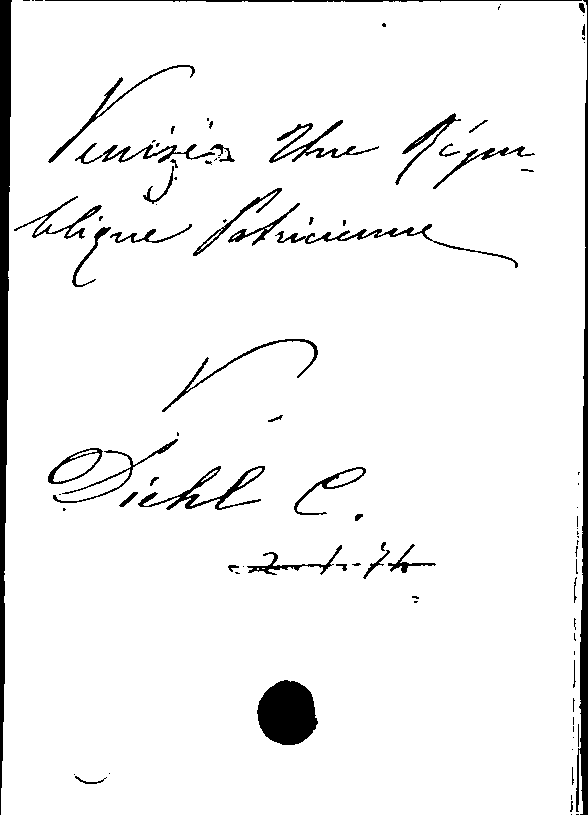 Venise Une Répu-
blique Patricienne
V.
Diehl C.